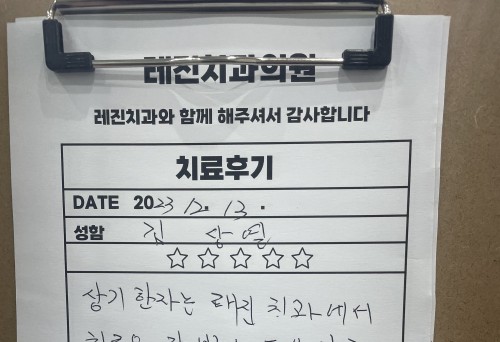 레진치과의원
레진치과와 함께 해주셔서 감사합니다
치료후기
DATE 2023 12. 13.
성함 김 상열
상기 환자는 레진 치과에서